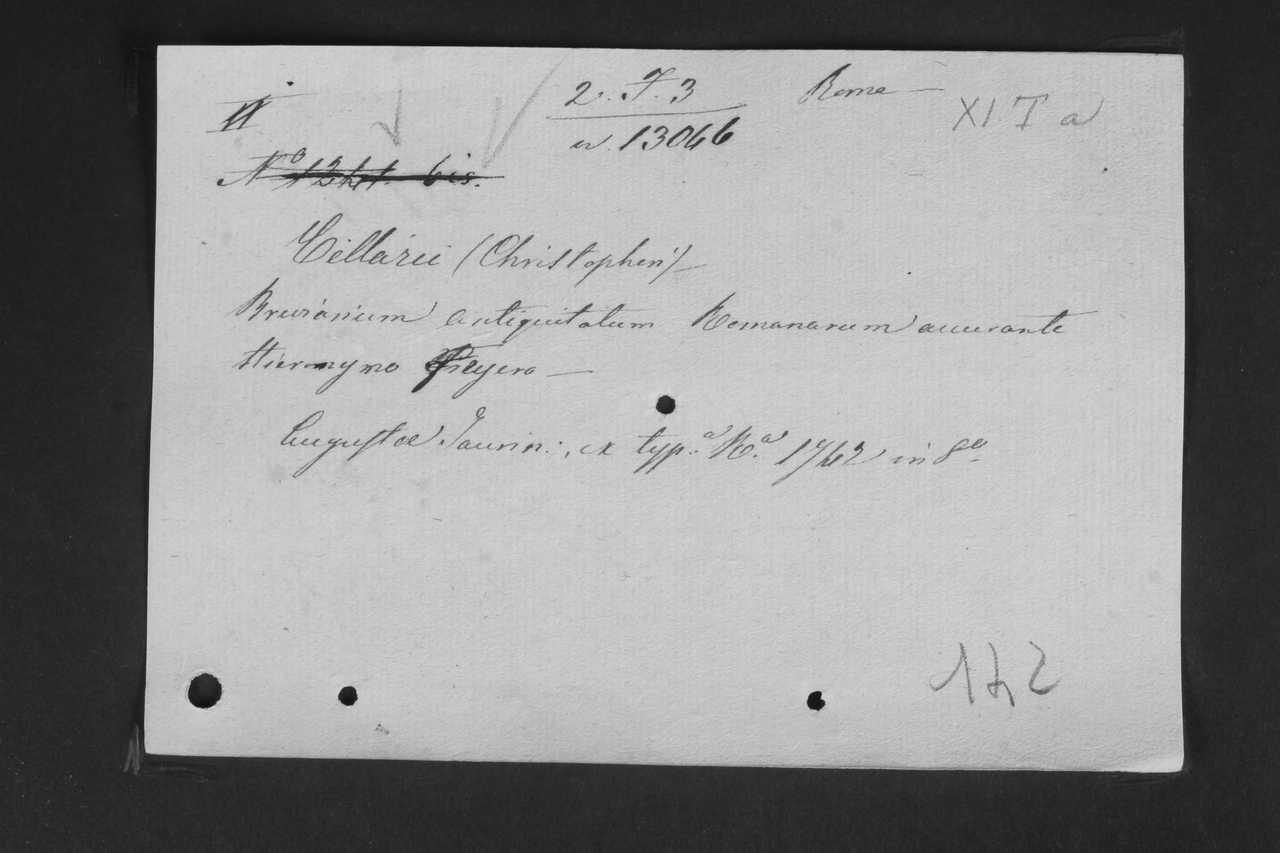 2. F. 3 Rome — XI T a
n. 13046
Nº bis.
Cellarii (Christopheri) —
Breviarium Antiquitatum Romanarum accurante
Hieronymo Freyero —
Augustæ Taurin: , ex typ.ª R.ª 1742 in 8º.
142